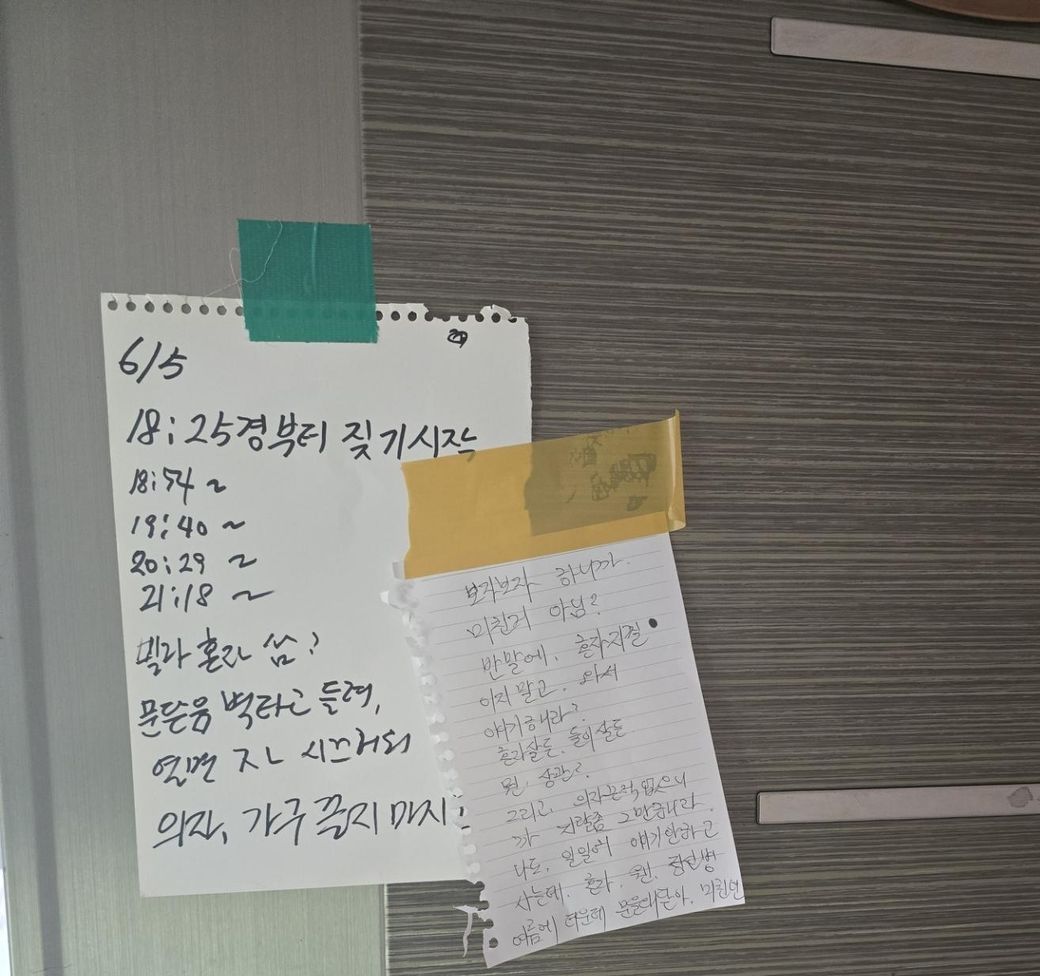 6/5
18:25경부터 짖기시작
18:54 ~
19:40 ~
20:29 ~
21:18 ~
빌라 혼자 씀?
문닫음 벽타고 들려,
열면 시끄러워
의자, 가구 끌지 마시
보자보자 하니까
미친거 아님?
반말에. 혼자지랄
이지말고. 와서
얘기해라?
혼자살든. 둘이살든
뭔. 상관?
그리고 의자끈적없으니
까 지랄좀 그만합니다.
나도. 일일이 얘기안하고
사는데. 혼자. 뭔.
여름에 더운데 문을왜닫아. 미친년